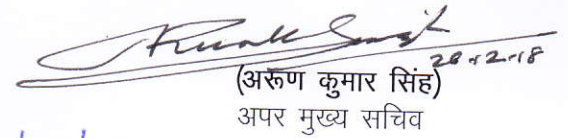 28.2.18
(अरूण कुमार सिंह)
अपर मुख्य सचिव